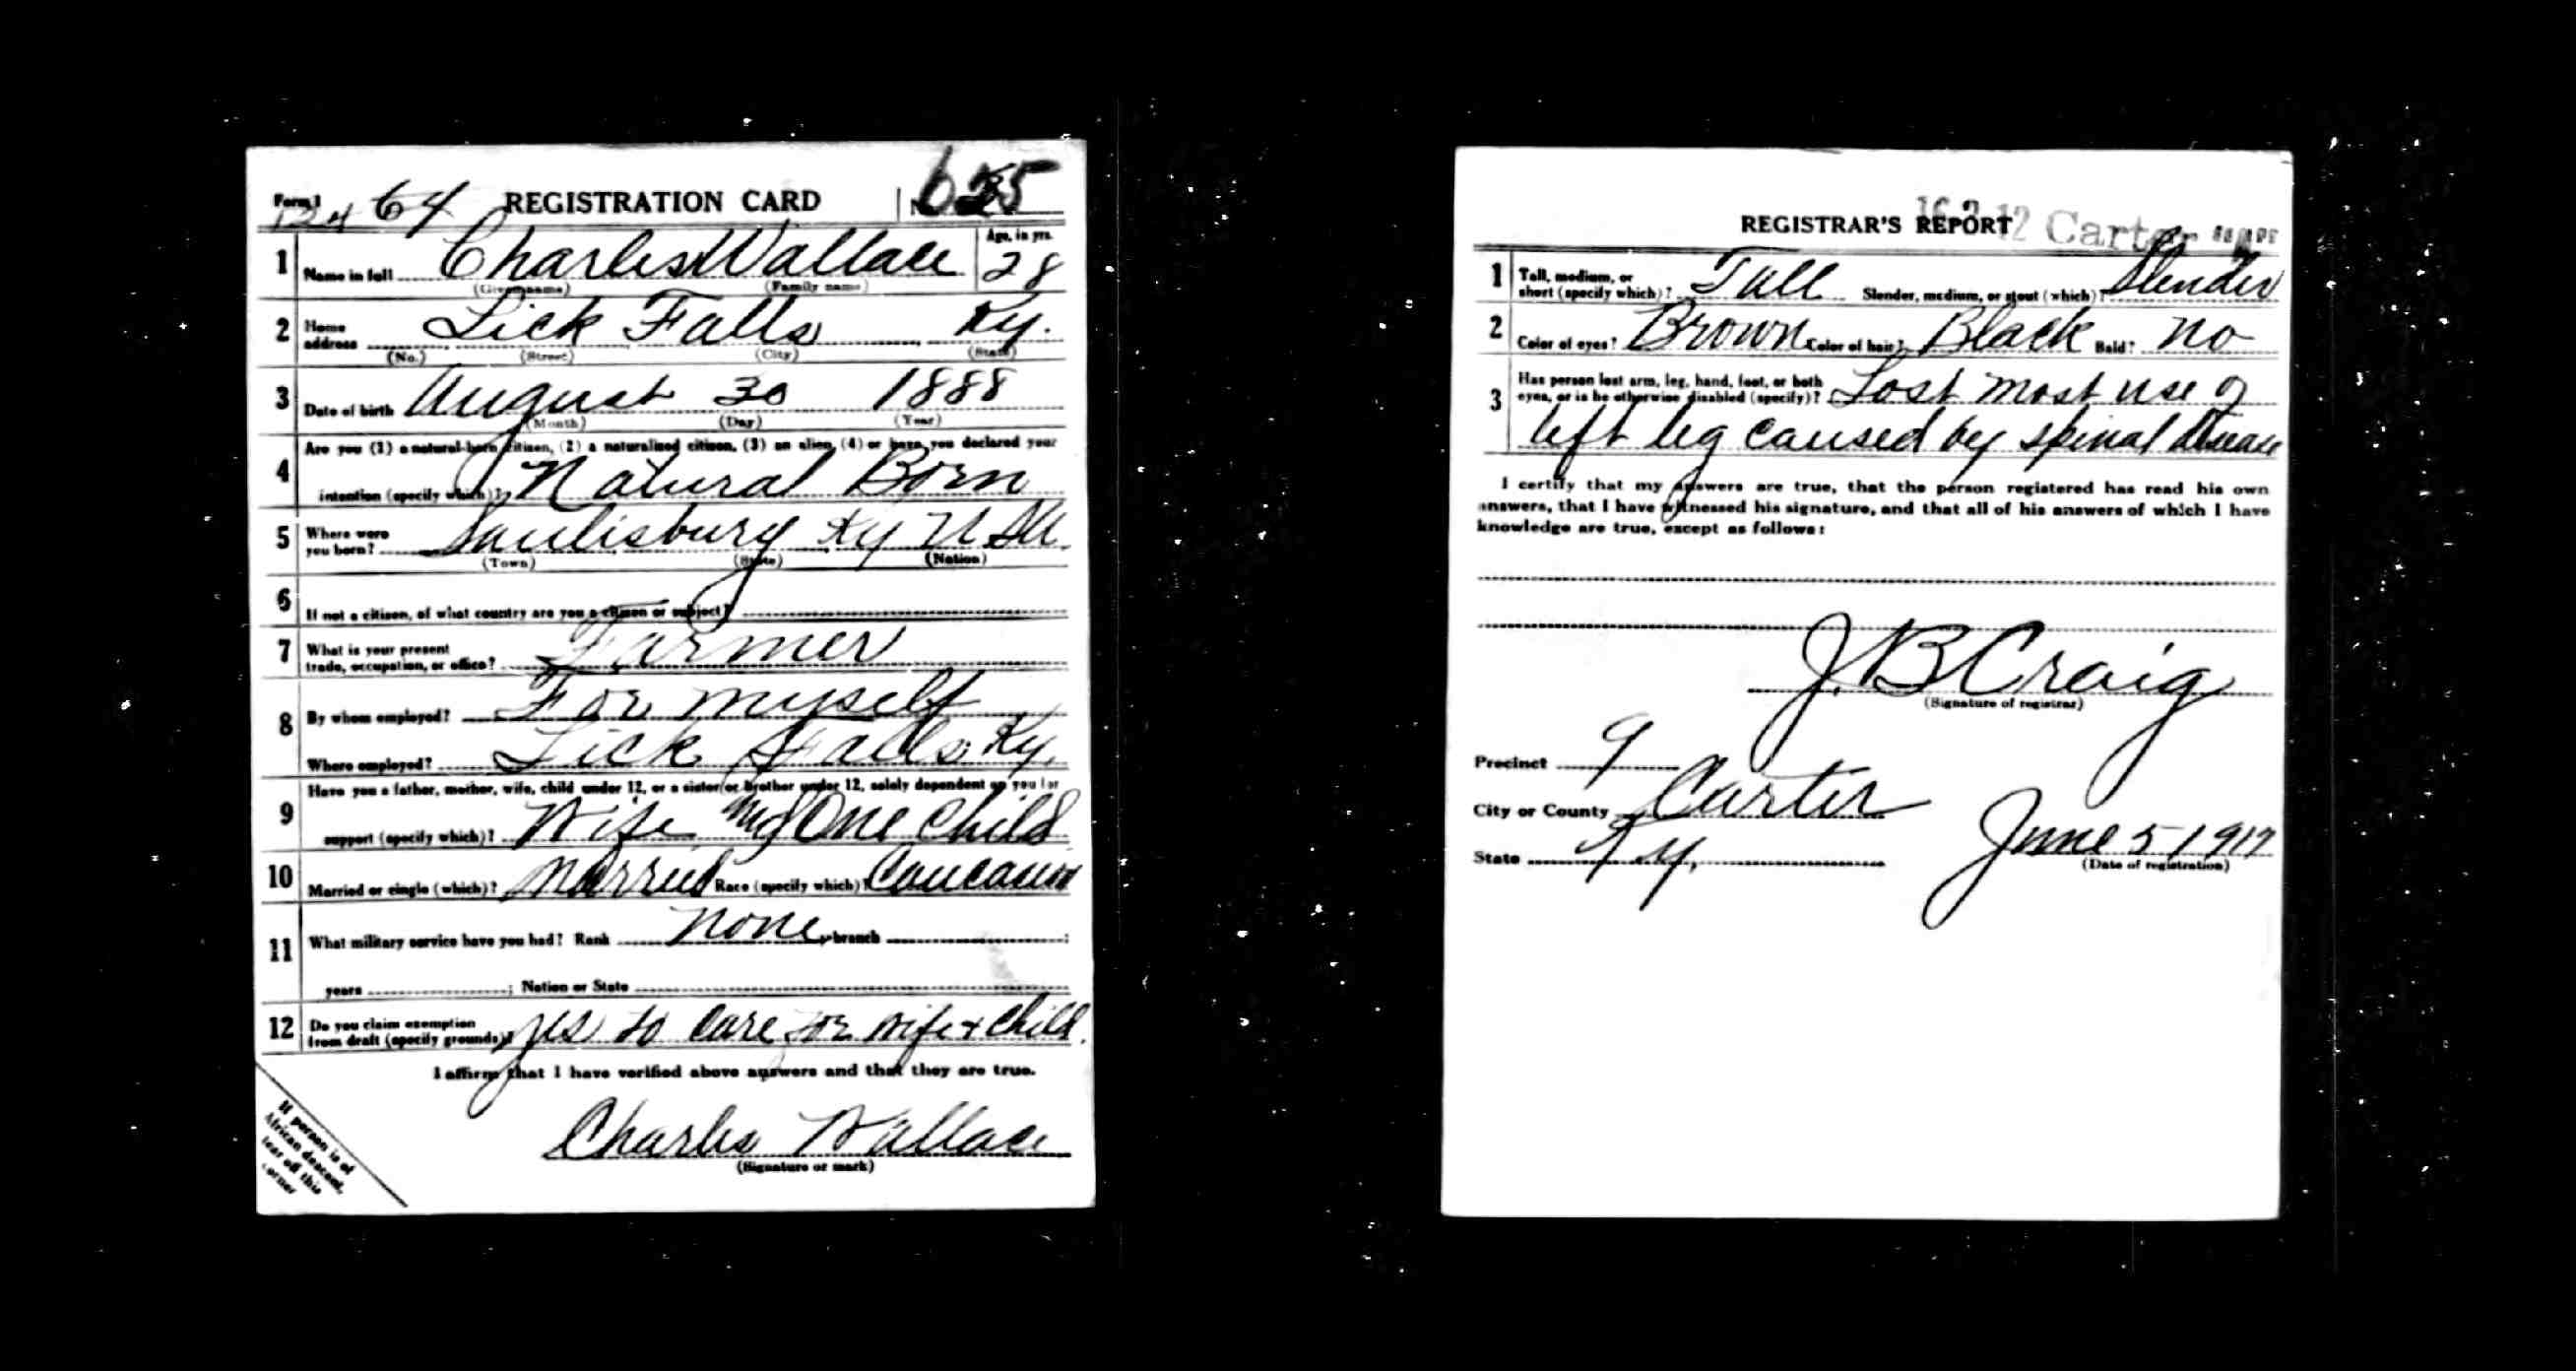 Form 1
1224 64 REGISTRATION CARD 625
1 Name in full Charles Wallace Age, in yrs. 28
(Given name) (Family name)
2 Home address Lick Falls Ky.
(No.) (Street) (City) (State)
3 Date of birth August 30 1888
(Month) (Day) (Year)
Are you (1) a natural-born citizen, (2) a naturalized citizen, (3) an alien, (4) or have you declared your
4 intention (specify which)? Natural Born
5 Where were you born? Saulisbury Ky U.S.A.
(Town) (State) (Nation)
6 If not a citizen, of what country are you a citizen or subject?
7 What is your present trade, occupation, or office? Farmer
8 By whom employed? For myself
Where employed? Lick Falls Ky.
Have you a father, mother, wife, child under 12, or a sister or brother under 12, solely dependent on you for
9 support (specify which)? Wife and One Child
10 Married or single (which)? Married Race (specify which)? Caucasian
11 What military service have you had? Rank None branch ;
years ; Nation or State
12 Do you claim exemption from draft (specify grounds)? yes to care for wife + child.
I affirm that I have verified above answers and that they are true.
Charles Wallace
(Signature or mark)
If person is of
African descent,
tear off this
corner
REGISTRAR'S REPORT Carter
1 Tall, medium, or short (specify which)? Tall Slender, medium, or stout (which)? Slender
2 Color of eyes? Brown Color of hair? Black Bald? No
3 Has person lost arm, leg, hand, foot, or both eyes, or is he otherwise disabled (specify)? Lost most use of
left leg caused by spinal disease
I certify that my answers are true, that the person registered has read his own
answers, that I have witnessed his signature, and that all of his answers of which I have
knowledge are true, except as follows:
J. B Craig
(Signature of registrar)
Precinct 9
City or County Carter
State Ky. June 5 1917
(Date of registration)